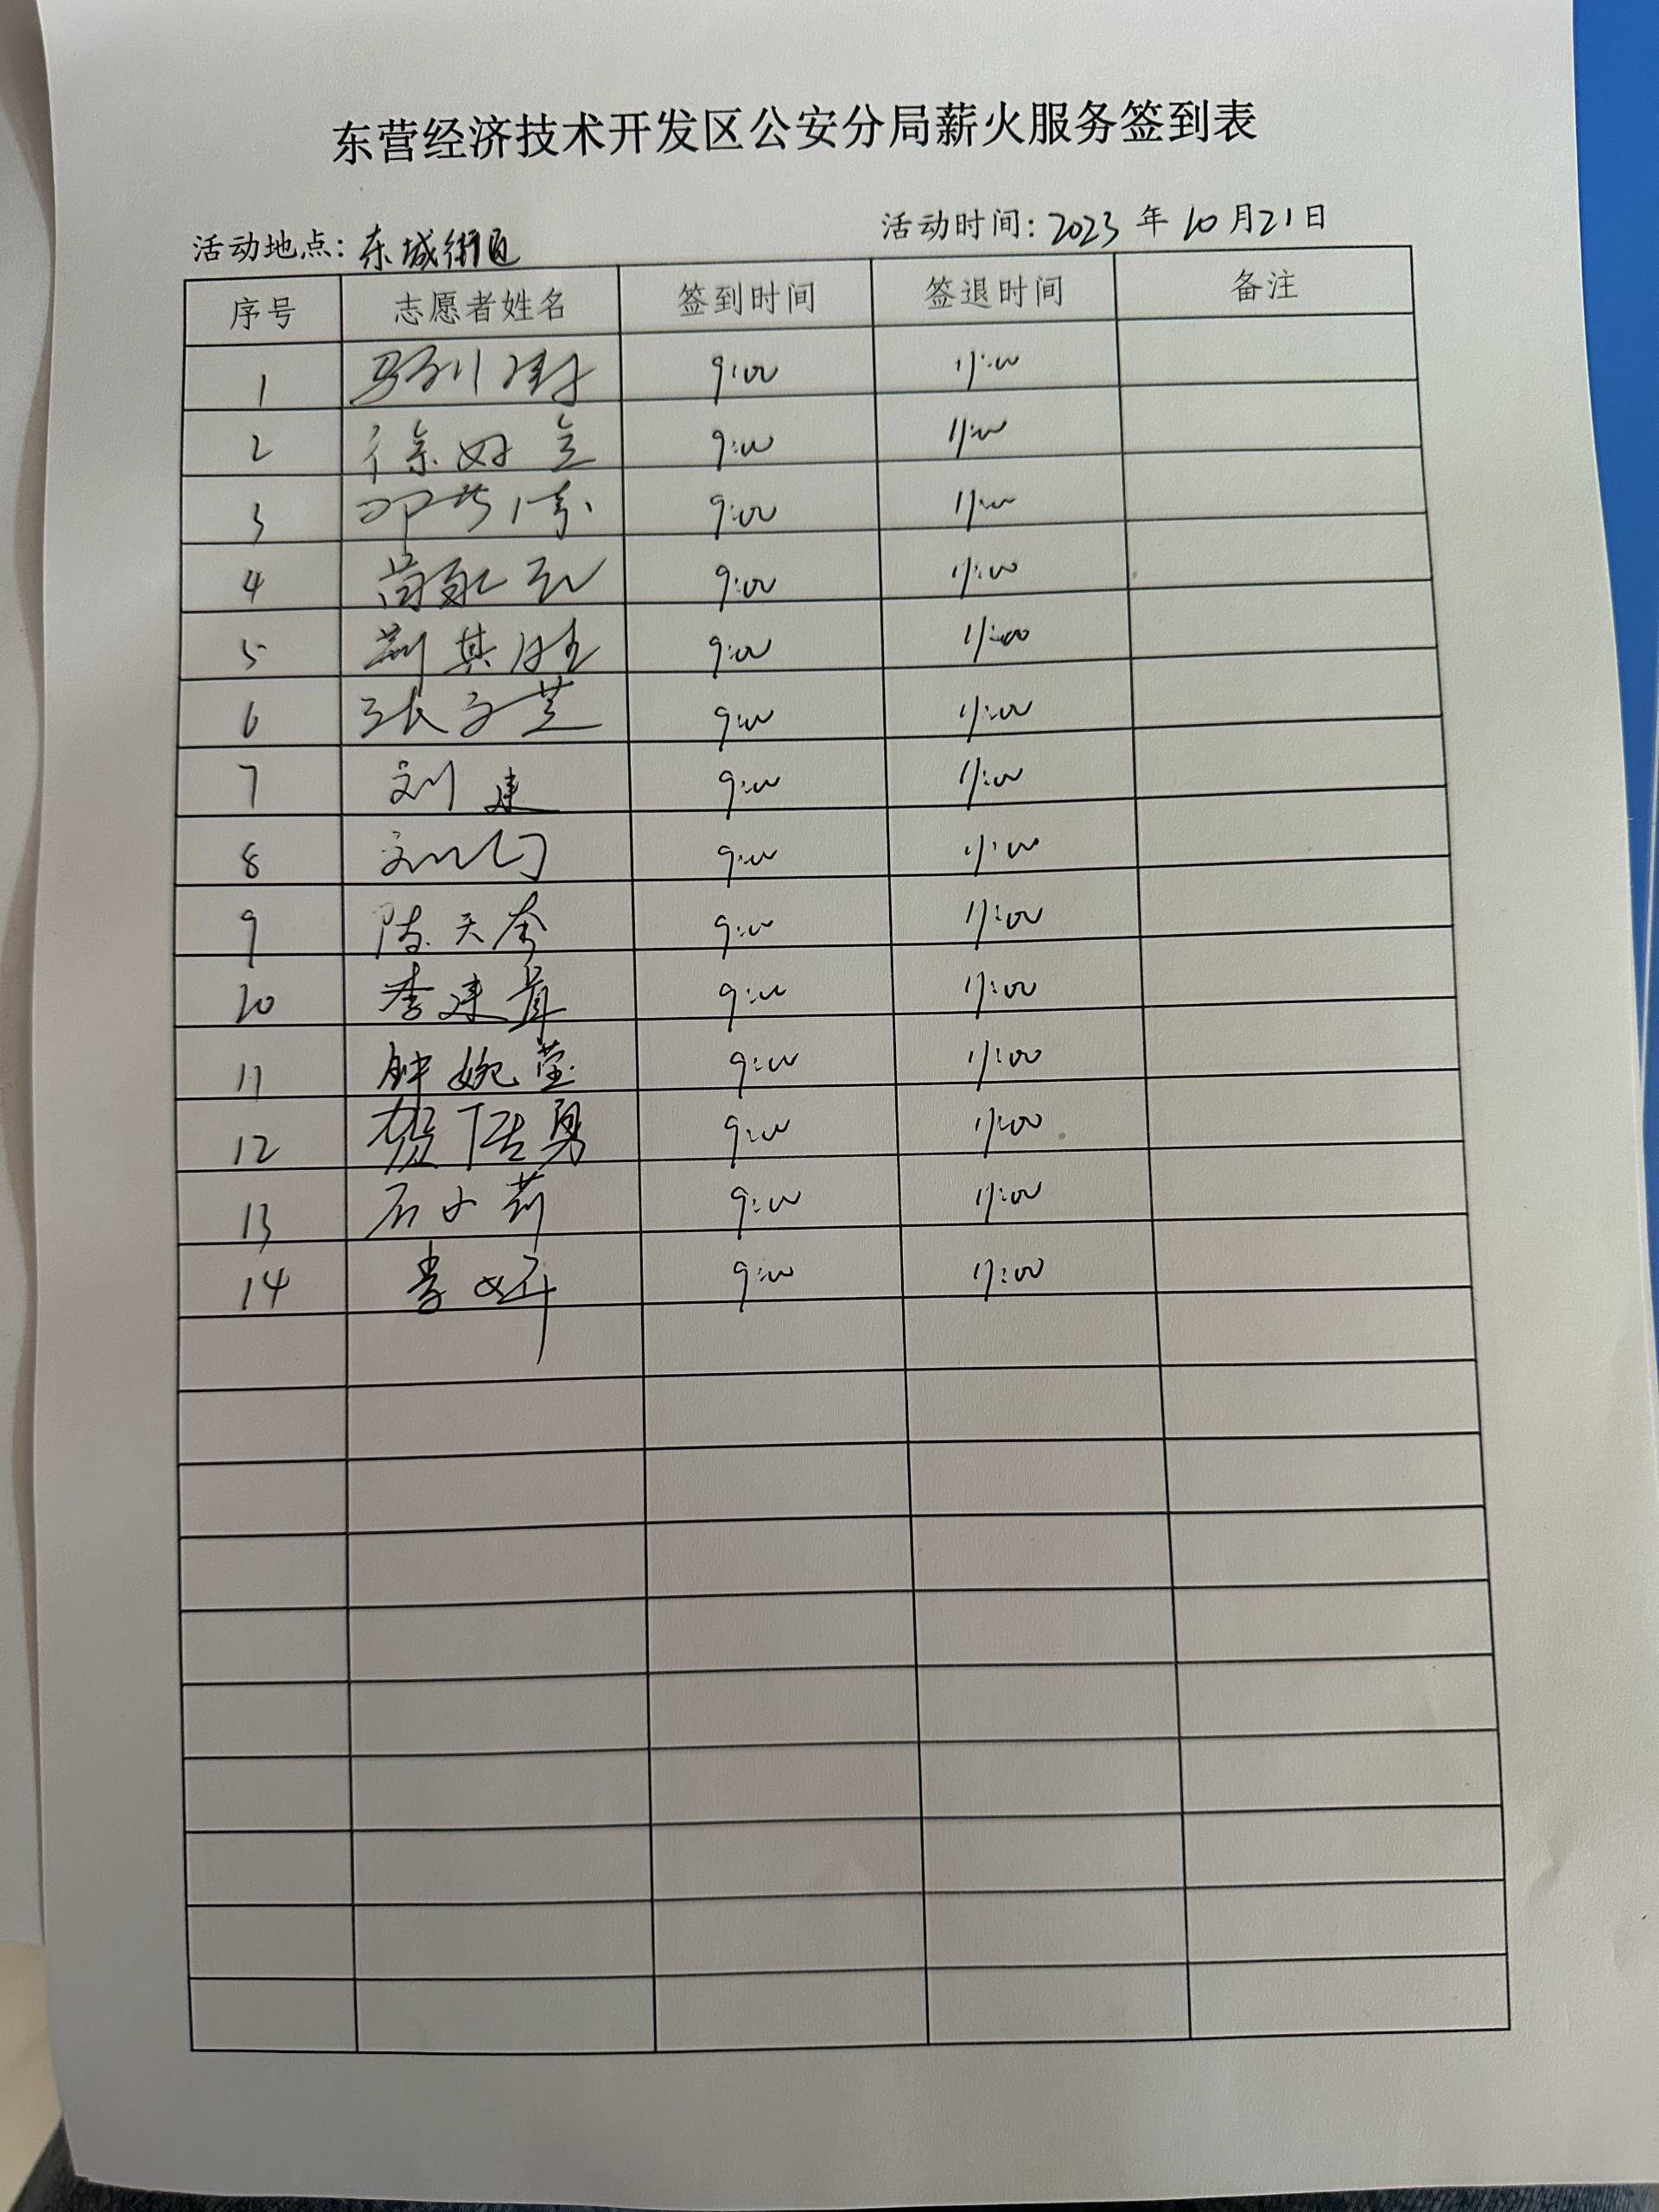 东营经济技术开发区公安分局薪火服务签到表
活动地点：东城街道 活动时间：2023 年 10 月 21 日
序号 志愿者姓名 签到时间 签退时间 备注
1 9:00 11:00
2 徐 9:00 11:00
3 邓 9:00 11:00
4 尚 9:00 11:00
5 荆其胜 9:00 11:00
6 张文芝 9:00 11:00
7 刘建 9:00 11:00
8 刘 9:00 11:00
9 陈天奇 9:00 11:00
10 李建茸 9:00 11:00
11 钟婉莹 9:00 11:00
12 贺 勇 9:00 11:00
13 石小莉 9:00 11:00
14 李妍 9:00 11:00